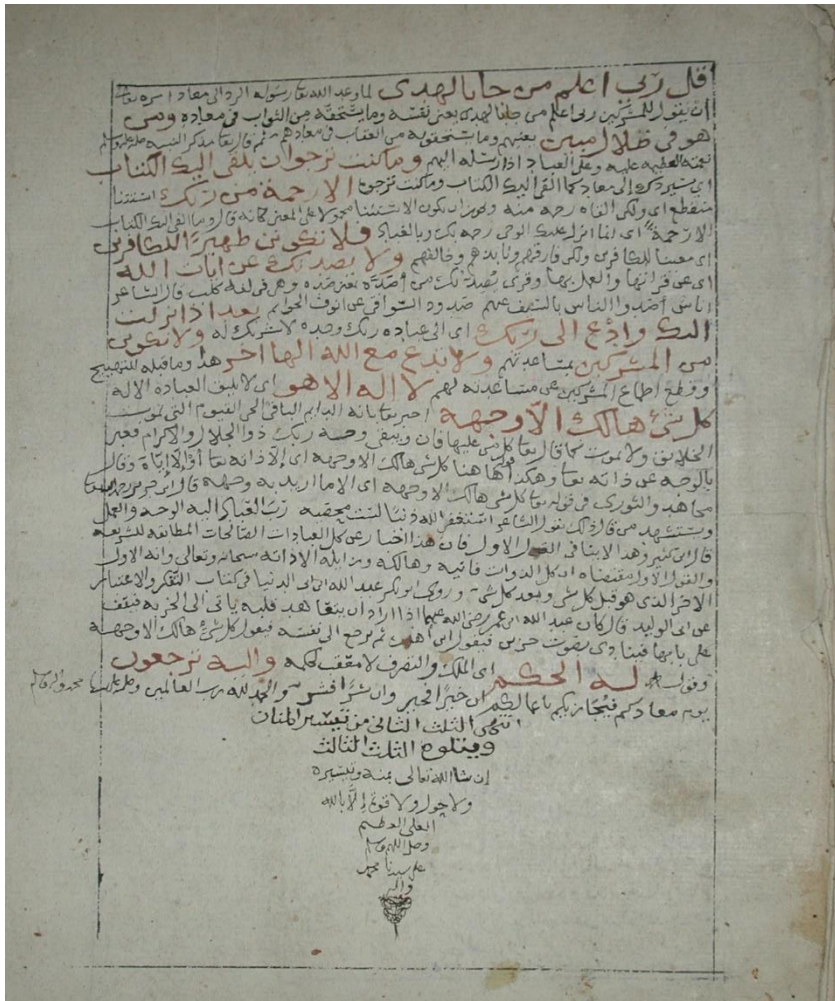 قل ربي اعلم من جا بالهدى لما وعد الله تعا رسوله الرد الى معاد امره تعا
ان يقول للمشركين ربي اعلم من جا بالهدى يعني نفسه وما يستحقه من الثواب في معاده ومن
هو في ضلال مبين يعنيهم وما يستحقونه من العقاب في معادهم ثم قال تعا مذكر النبيه صلى عليه وسلم
نعمته العظيمه عليه وعلى العباد اذ ارسله اليهم وما كنت ترجوا ان يلقى اليك الكتاب
اي سنردك الى معاد كما القي اليك الكتاب وما كنت ترجوه الا رحمة من ربك استثنا
منقطع اي ولكن القاه رحمه منه ويجوز ان يكون الاستثنا محمولا على المعنى كانه قال وما القي اليك الكتاب
الا رحمة اي لما انزل عليك الوحي رحمه بك وبالعباد فلا تكونن ظهيرا للكافرين
اي معينا للكافرين ولكن فارقهم ونابذهم وخالفهم ولا يصدنك عن ايات الله
اي عن قراتها والعمل بها وقري يصدنك من اصده بمعنى صده وهي في لغه كلب قال الشاعر
اناس اصدوا الناس بالسيف عنهم صدود السواقي عن انوف الحوائم بعد اذ انزلت
اليك وادع الى ربك اي الى عباده ربك وحده لا شريك له ولا تكونن
من المشركين بمساعدتهم ولا تدع مع الله الها اخر هذا وما قبله للتهييج
وقطع اطماع المشركين عن مساعدته لهم لا اله الا هو اي لا يليق العبادة الا له
كل شئ هالك الا وجهه اخبر تعا بانه الدايم الباقي الحي القيوم الذي تموت
الخلايق ولا يموت كما قال تعا كل من عليها فان ويبقى وجه ربك ذو الجلال والاكرام فعبر
بالوجه عن ذاته تعا وهكذا هاهنا كل شي هالك الا وجهه اي الا ذاته تعا او الا اياه وقال
مجاهد والثوري في قوله تعا كل شي هالك الا وجهه اي الا ما اريد به وجهه قال ابن جرير
ويستشهد من قال ذلك بقول الشاعر استغفر الله ذنبا لست محصيه رب العباد اليه الوجه والعمل
قال ابن كثير وهذا لا ينافي القول الاول فان هذا اخبار عن كل العبادات المطابقه للشريعه
والقول الاول مقتضاه ان كل الذوات فانيه وهالكه وزايله الا ذاته سبحانه وتعالى وانه الاول
الاخر الذي هو قبل كل شي وبعد كل شي وروى ابو بكر عبد الله ابن ابي الدنيا في كتاب التفكر والاعتبار
عن ابي الوليد قال كان عبد الله ابن عمر رضي الله عنهما اذا اراد ان يتعاهد قلبه ياتي الى الخربه فيقف
على بابها فينادي بصوت حزين فيقول اين اهلك ثم يرجع الى نفسه فيقول كل شئ هالك الا وجهه
وقوله له الحكم اي الملك والتصرف لا معقب لحكمه واليه ترجعون
يوم معادكم فيجازيكم باعمالكم ان خيرا فخير وان شرا فشر والحمد لله رب العالمين
انتهى الثلث الثاني من تفسير المنان
ويتلوه الثلث الثالث
ان شا الله تعالى بمنه وتيسيره
ولا حول ولا قوة الا بالله
العلي العظيم
وصل الله وسلم
على سيدنا محمد
واله